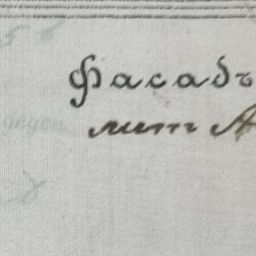 Фасадъ
лит А